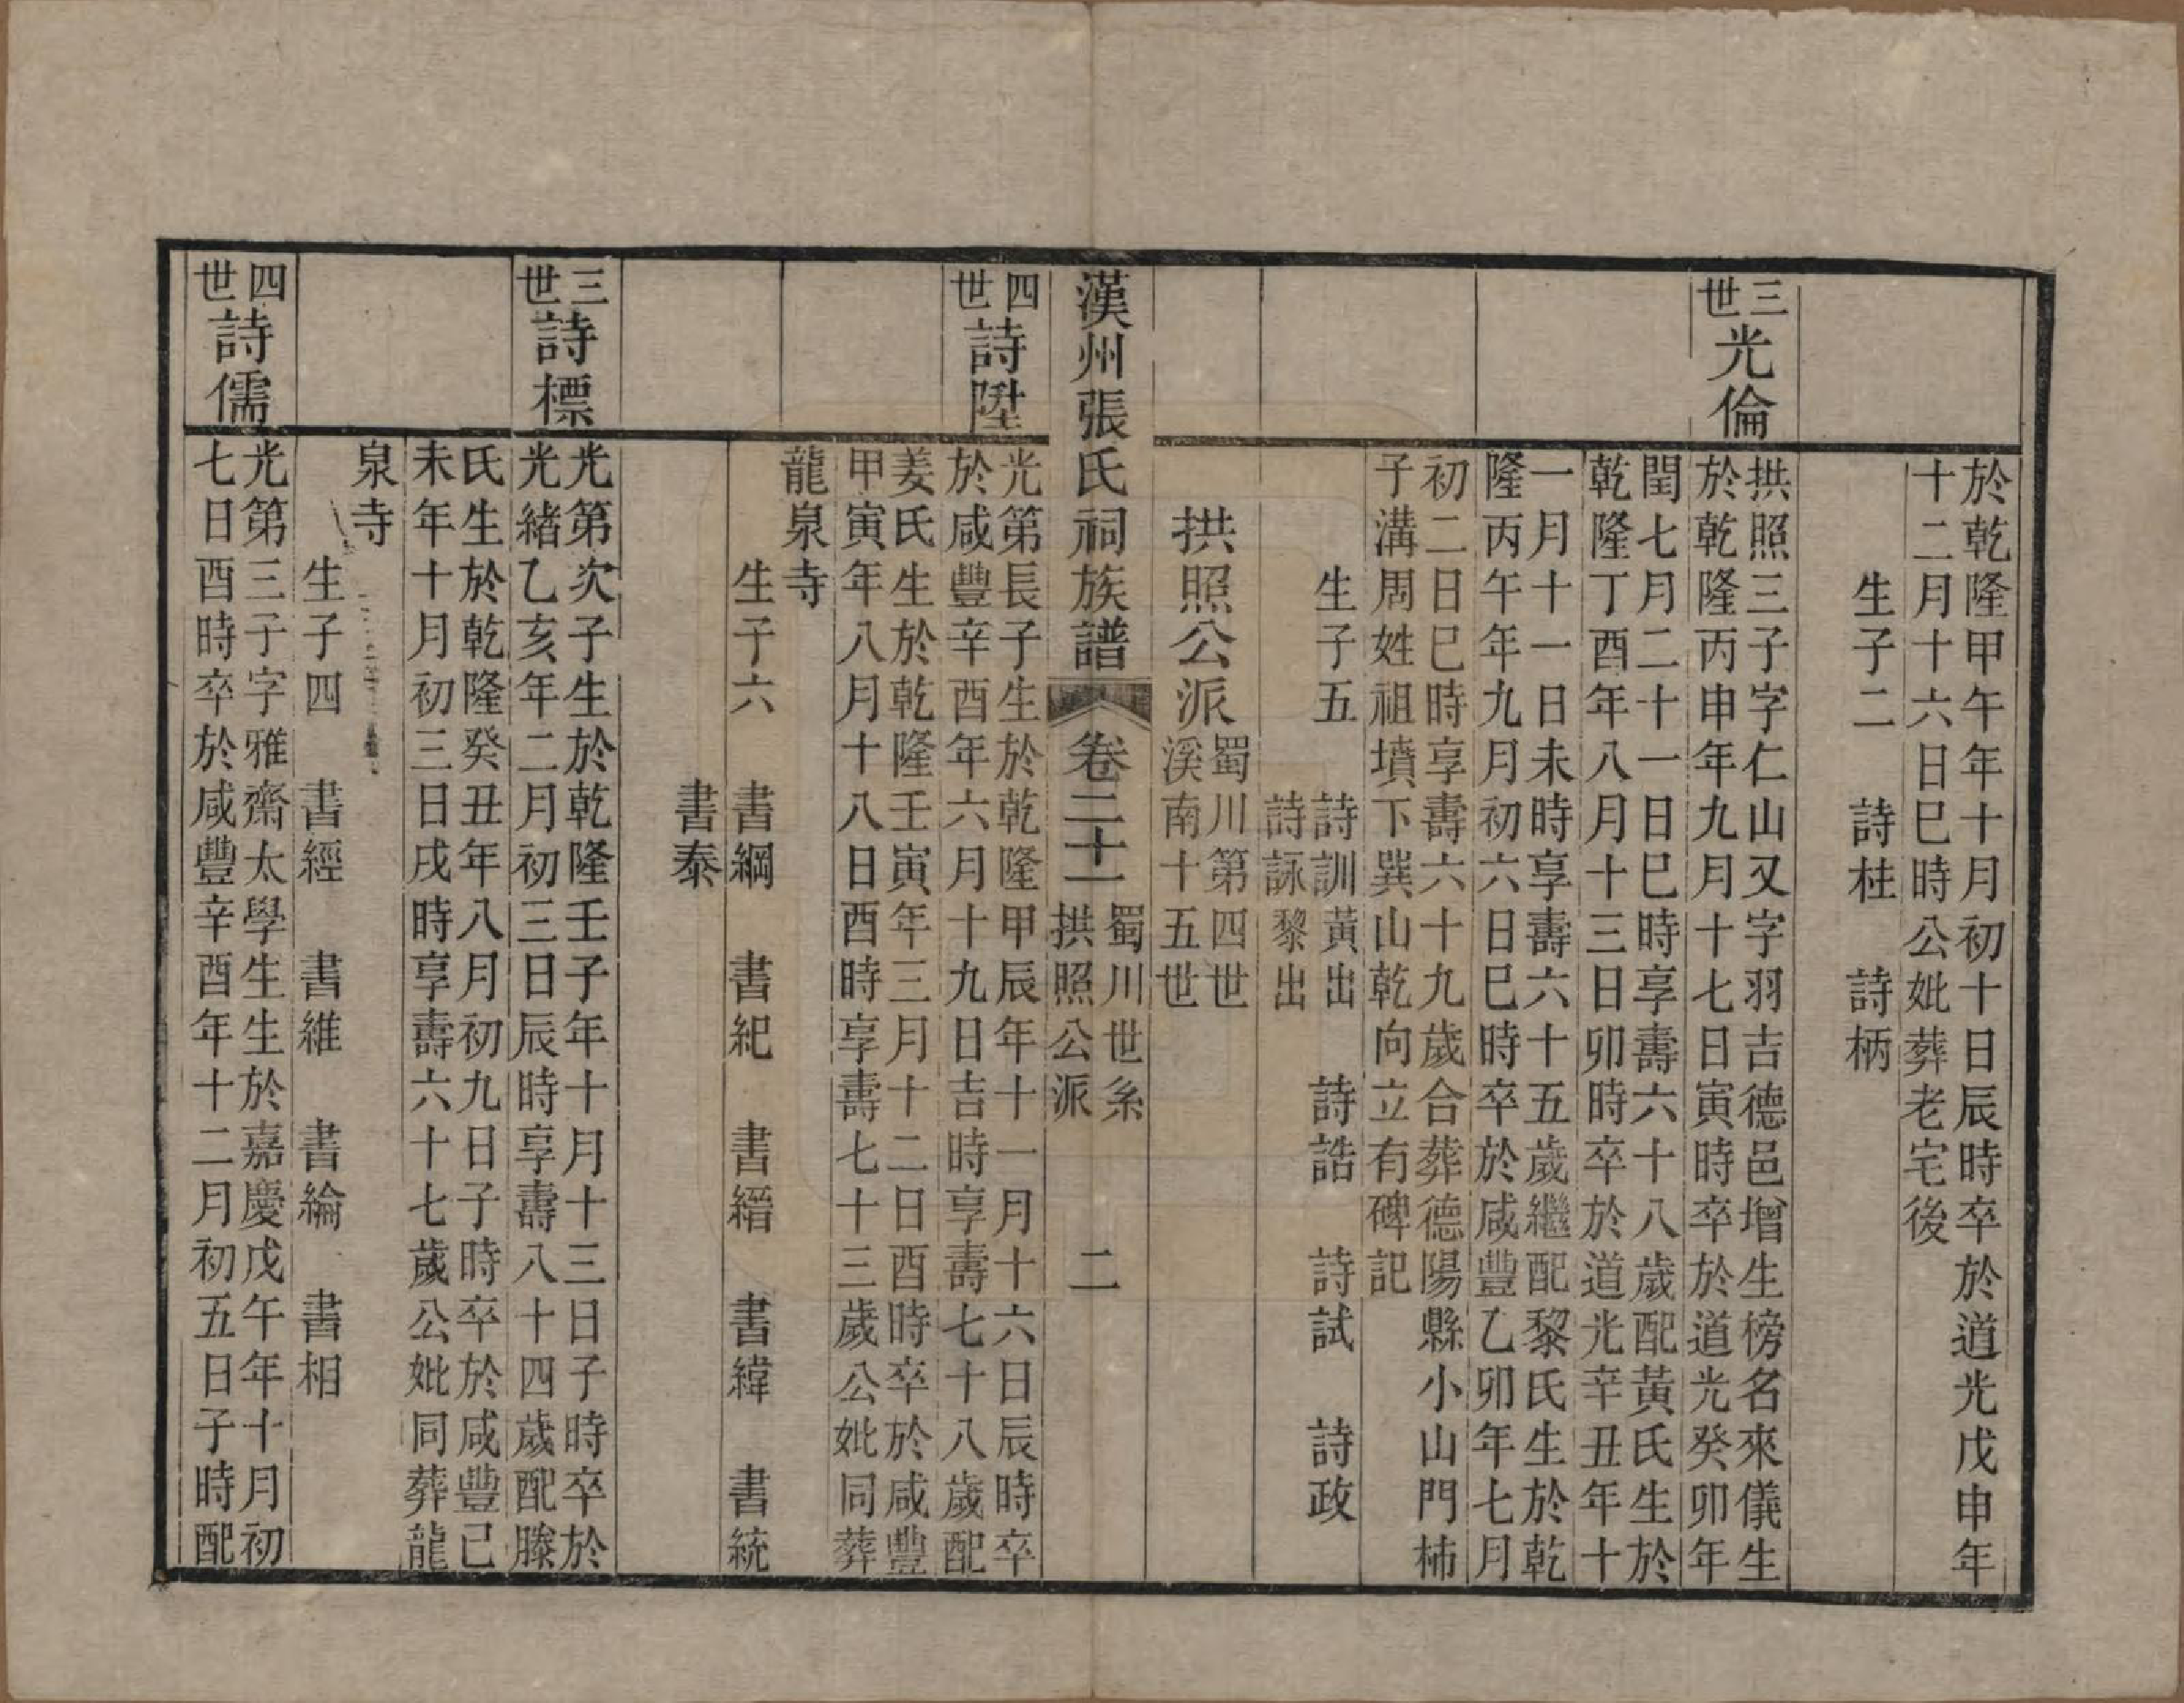 於乾隆甲午年十月初十日辰時卒於道光戊申年
十二月十六日巳時公妣葬老宅後
生子二　詩桂　詩柄
三世光倫
拱照三子字仁山又字羽吉德邑增生榜名來儀生
於乾隆丙申年九月十七日寅時卒於道光癸卯年
閏七月二十一日巳時享壽六十八歲配黃氏生於
乾隆丁酉年八月十三日卯時卒於道光辛丑年十
一月十一日未時享壽六十五歲繼配黎氏生於乾
隆丙午年九月初六日巳時卒於咸豐乙卯年七月
初二日巳時享壽六十九歲合葬德陽縣小山門柿
子溝周姓祖墳下巽山乾向立有碑記
生子五　詩訓黃出　詩誥　詩試　詩政
詩詠黎出
拱照公派蜀川第四世
溪南十五世
漢州張氏祠族譜　卷二十一　蜀川世系
拱照公派　二
四世詩陞
光第長子生於乾隆甲辰年十一月十六日辰時卒
於咸豐辛酉年六月十九日吉時享壽七十八歲配
姜氏生於乾隆壬寅年三月十二日酉時卒於咸豐
甲寅年八月十八日酉時享壽七十三歲公妣同葬
龍泉寺
生子六　書綱　書紀　書縉　書緯　書統
書泰
三世詩標
光第次子生於乾隆壬子年十月十三日子時卒於
光緒乙亥年二月初三日辰時享壽八十四歲配滕
氏生於乾隆癸丑年八月初九日子時卒於咸豐己
未年十月初三日戌時享壽六十七歲公妣同葬龍
泉寺
生子四　書經　書維　書綸　書相
四世詩儒
光第三子字雅齋太學生生於嘉慶戊午年十月初
七日酉時卒於咸豐辛酉年十二月初五日子時配